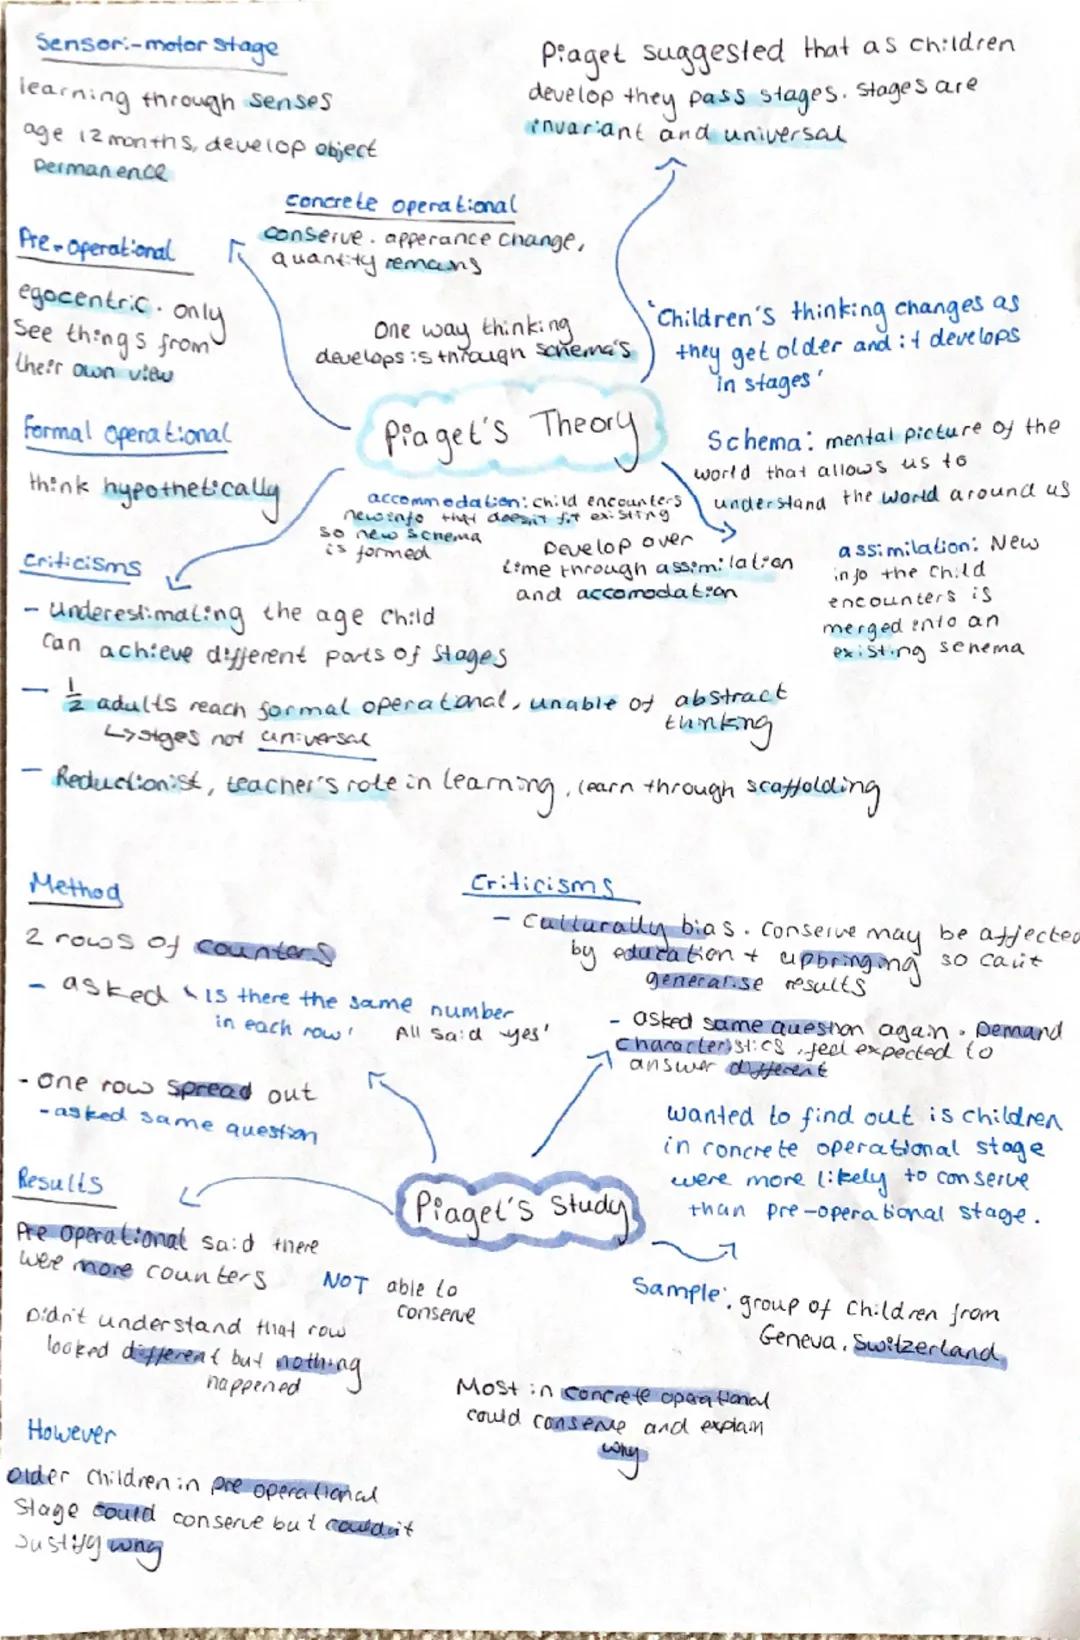 Sensori-motor stage
learning through senses
age 12 months, develop object
permanence
Piaget suggested that as children
develop they pass stages. stages are
invariant and universal
concrete operational
conserve. apperance change,
quantity remains
Pre-operational
egocentric. only
see things from
their own view
One way thinking
develops is through schema's
'Children's thinking changes as
they get older and it develops
in stages'
Formal operational
think hypothetically
Piaget's Theory
Schema: mental picture of the
world that allows us to
understand the world around us
accommodation: child encounters
new info that doesn't fit existing
so new schema
is formed
Develop over
time through assimilation
and accomodation
assimilation: New
info the child
encounters is
merged into an
existing schema
criticisms
- Underestimating the age child
can achieve different parts of stages
- 1/2 adults reach formal operational, unable of abstract
thinking
↳ stges not universal
- Reductionist, teacher's role in learning, learn through scaffolding
Method
2 rows of counters
- asked 'is there the same number
in each row' All said 'yes'
- one row spread out
- asked same question
Criticisms
- Culturally bias. Conserve may be affected
by education + upbringing so can't
generalise results
- asked same question again. Demand
characteristics, feel expected to
answer different
Piaget's Study
wanted to find out is children
in concrete operational stage
were more likely to conserve
than pre-operational stage.
Sample: group of children from
Geneva, Switzerland
Results
Pre operational said there
were more counters
NOT able to
conserve
Didn't understand that row
looked different but nothing
happened
Most in concrete operational
could conserve and explain
why
However
older children in pre operational
stage could conserve but couldn't
justify why